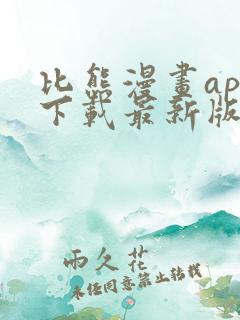 比熊漫畫ap
下載最新版
雨久花
未經同意禁止轉載